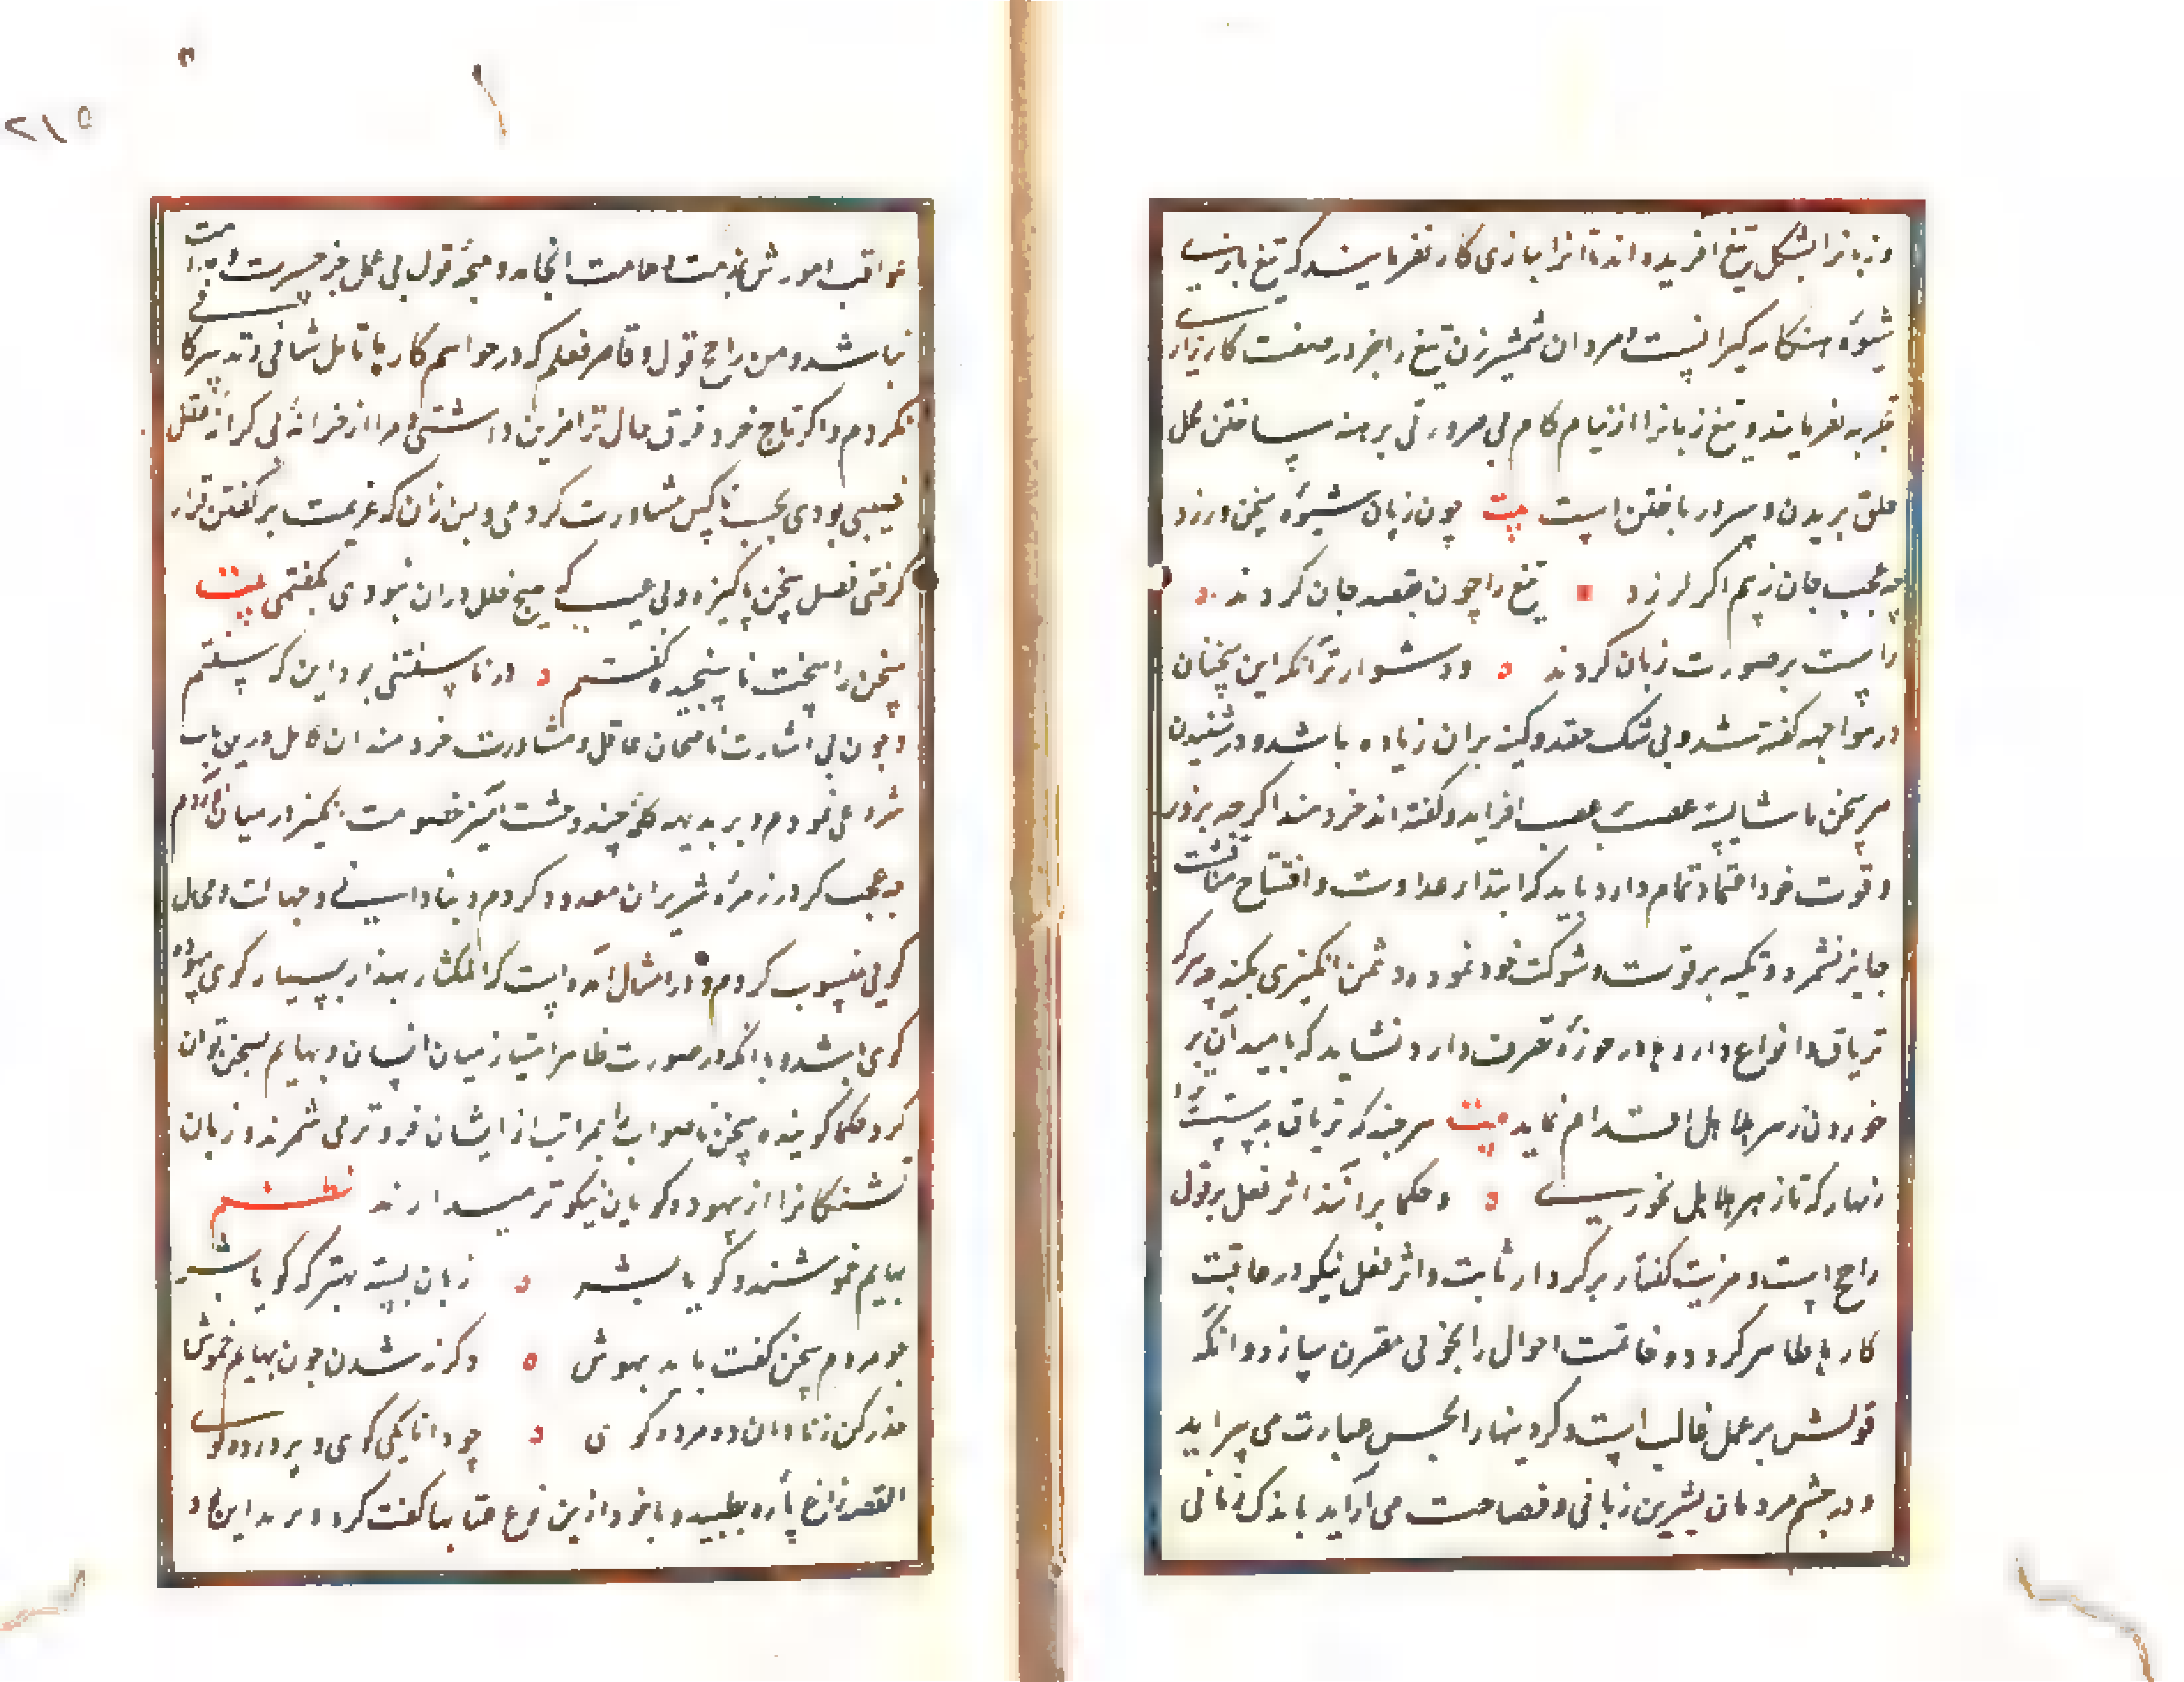 و زبانرا بشکل تیغ افریده اند تا انرا ببازی کار نفرمایند که تیغ بازی
شیوهٔ هنکامه کیرانست و مردان شمشیرزن تیغ را جز در صفت کارزار
تجربه نفرمایند و تیغ زبانرا از نیام کام بی ضرورتی برهنه ساختن محل
حلق بریدن و سر در باختن است بیت چون زبان شیوهٔ سخن ورزد
چه عجب جان ز بیم اکر لرزد تیغ را چون بقصد جان کردند
راست بر صورت زبان کردند و دشوارتر آنکه این سخنان
در مواجهه کفته شد و بی شک حقد و کینه بران زیاده باشد و در شنیدن
هر سخن ناشایسته عصب عصب افزاید و کفته اند خردمند اکر چه بزور
و قوت خود اعتماد تمام دارد باید که ابتداء عداوت و افتتاح مناقشت
جایز نشمرد و تکیه بر قوت و شوکت خود نموده دشمن انکیزی نکند چه هرکه
تریاق و انواع داروها در حوزهٔ تصرف دارد نشاید که بامید آن بر
خوردن زهر هلاهل اقدام نماید بیت هرچند که تریاق بدستست ترا
زنهار که تا زهر هلاهل نخوری و حکما برآنند اثر فعل بر قول
راجح است و مزیت کفتار بر کردار ثابت و اثر فعل نیکو در عاقبت
کارها ظاهر کردد و خاتمت احوال را بخوبی مقرن سازد و انکه
قولش بر عمل غالب است و کردنیها را بحسن عبارت می پیراید
و در چشم مردمان بشیرین زبانی و فصاحت می آراید باندک زمانی
۲۱۵
عواقب امورش بمذمت و ملامت انجامد و نتیجهٔ قول بی عمل جز حسرت و ندامت
نباشد و من راجح قول و قاصر فعلم که در خواتیم کارها تامل شافی و تدبیر کافی
نکردم و اکر تاج خرد فرق حال ترا مزین داشتی و مرا از خزانهٔ بی کرانهٔ عقل
نصیبی بودی نخست با کسی مشاورت کردمی و پس زان که عزیمت بر کفتن قرار
کرفتی فصل سخن پاکیزه و بی عیب که هیچ خلل دران نبودی بکفتمی بیت
سخن را سخت ناسنجیده کفتم در ناسفتنی بود این که سفتم
و چون بی اشارت ناصحان عاقل و مشاورت خردمندان کامل درین باب
شروعی نمودم و بر بدیهه کلمهٔ چند وحشت آمیز خصومت انکیز در میان آوردم
چه عجب که در زمرهٔ شریران معدود کردم و بنادانی و جهالت و مجال
کویی منسوب کردم و در امثال آمده است که المکثار مهذار بسیار کوی بیهوده
کوی باشد و با انکه در صورت ظاهر امتیاز میان انسان و بهایم بسخن توان
کرد حکما کوینده سخن ناصواب را بمراتب از ایشان فروتر می شمرند و زبان
تشنکانرا از بیهوده کویان نیکوتر میدارند نظم
بهایم خموشند و کویا بشر زبان بسته بهتر که کویا بشر
چو مردم سخن کفت باید بهوش و کرنه شدن چون بهایم خموش
حذر کن ز نادان ده مرده کوی چو دانا یکی کوی و پرورده کوی
القصه زاغ پاره بطپید و با خود ازین نوع عتابها کفت کرد و برید این بود